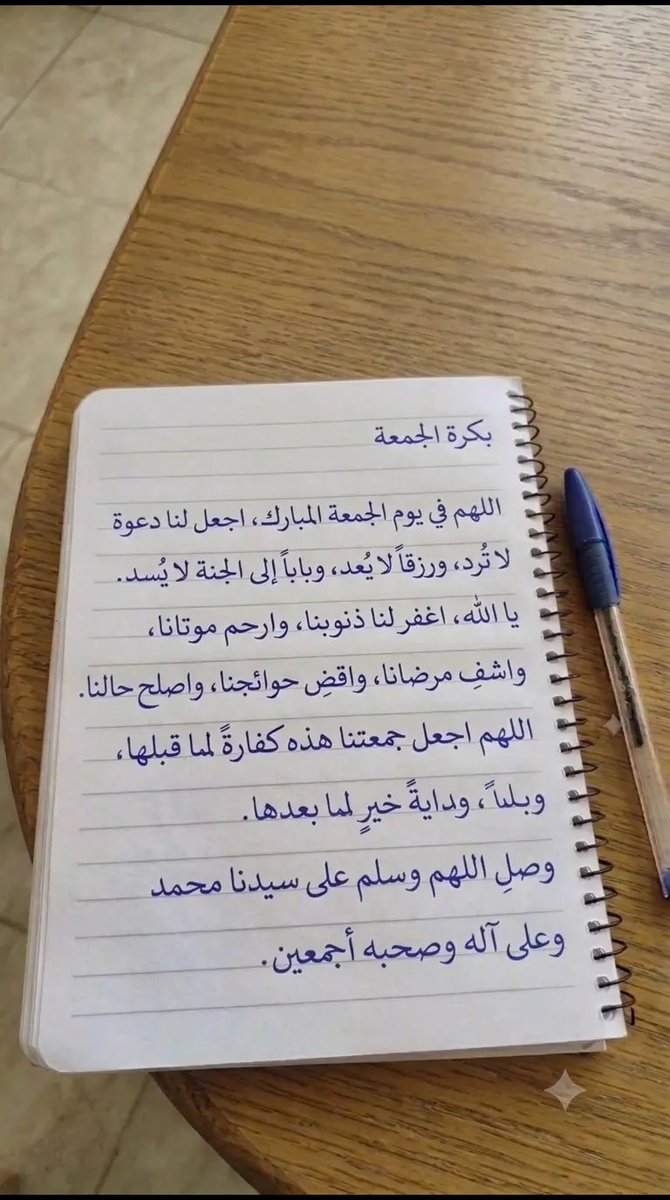 بكرة الجمعة
اللهم في يوم الجمعة المبارك، اجعل لنا دعوة
لا تُرد، ورزقاً لا يُعد، وباباً إلى الجنة لا يُسد.
يا الله، اغفر لنا ذنوبنا، وارحم موتانا،
واشفِ مرضانا، واقضِ حوائجنا، واصلح حالنا.
اللهم اجعل جمعتنا هذه كفارةً لما قبلها،
خيرٍ لما بعدها.
وصلِ اللهم وسلم على سيدنا محمد
وعلى آله وصحبه أجمعين.